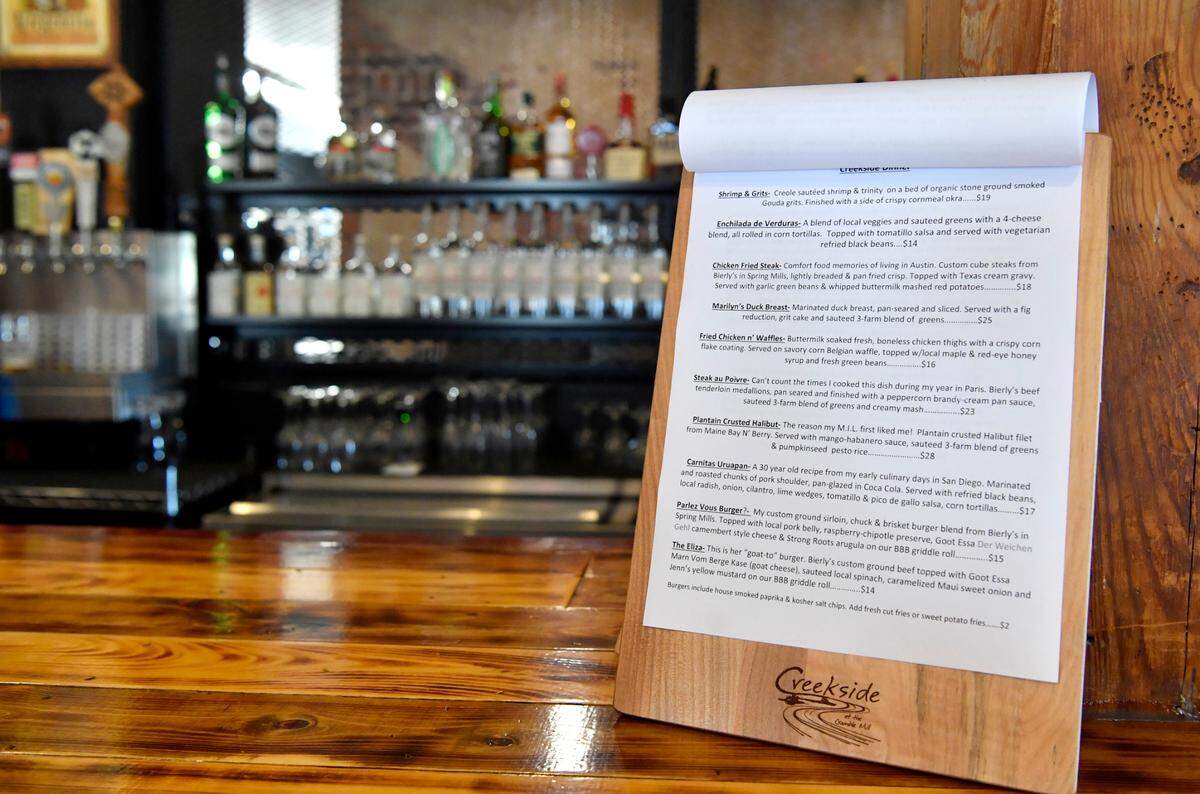 Creekside Dinner
Shrimp & Grits- Creole sautéed shrimp & trinity on a bed of organic stone ground smoked
Gouda grits. Finished with a side of crispy cornmeal okra......$19
Enchilada de Verduras- A blend of local veggies and sauteed greens with a 4-cheese
blend, all rolled in corn tortillas. Topped with tomatillo salsa and served with vegetarian
refried black beans....$14
Chicken Fried Steak- Comfort food memories of living in Austin. Custom cube steaks from
Bierly's in Spring Mills, lightly breaded & pan fried crisp. Topped with Texas cream gravy.
Served with garlic green beans & whipped buttermilk mashed red potatoes..............$18
Marilyn's Duck Breast- Marinated duck breast, pan-seared and sliced. Served with a fig
reduction, grit cake and sauteed 3-farm blend of greens..............$25
Fried Chicken n' Waffles- Buttermilk soaked fresh, boneless chicken thighs with a crispy corn
flake coating. Served on savory corn Belgian waffle, topped w/local maple & red-eye honey
syrup and fresh green beans..............$16
Steak au Poivre- Can't count the times I cooked this dish during my year in Paris. Bierly's beef
tenderloin medallions, pan seared and finished with a peppercorn brandy-cream pan sauce,
sauteed 3-farm blend of greens and creamy mash..............$23
Plantain Crusted Halibut- The reason my M.I.L. first liked me! Plantain crusted Halibut filet
from Maine Bay N' Berry. Served with mango-habanero sauce, sauteed 3-farm blend of greens
& pumpkinseed pesto rice..............$28
Carnitas Uruapan- A 30 year old recipe from my early culinary days in San Diego. Marinated
and roasted chunks of pork shoulder, pan-glazed in Coca Cola. Served with refried black beans,
local radish, onion, cilantro, lime wedges, tomatillo & pico de gallo salsa, corn tortillas.........$17
Parlez Vous Burger?- My custom ground sirloin, chuck & brisket burger blend from Bierly's in
Spring Mills. Topped with local pork belly, raspberry-chipotle preserve, Goot Essa Der Weichen
Gehl camembert style cheese & Strong Roots arugula on our BBB griddle roll..............$15
The Eliza- This is her "goat-to" burger. Bierly's custom ground beef topped with Goot Essa
Marn Vom Berge Kase (goat cheese), sauteed local spinach, caramelized Maui sweet onion and
Jenn's yellow mustard on our BBB griddle roll..............$14
Burgers include house smoked paprika & kosher salt chips. Add fresh cut fries or sweet potato fries......$2
Creekside
at the
Gamble Mill